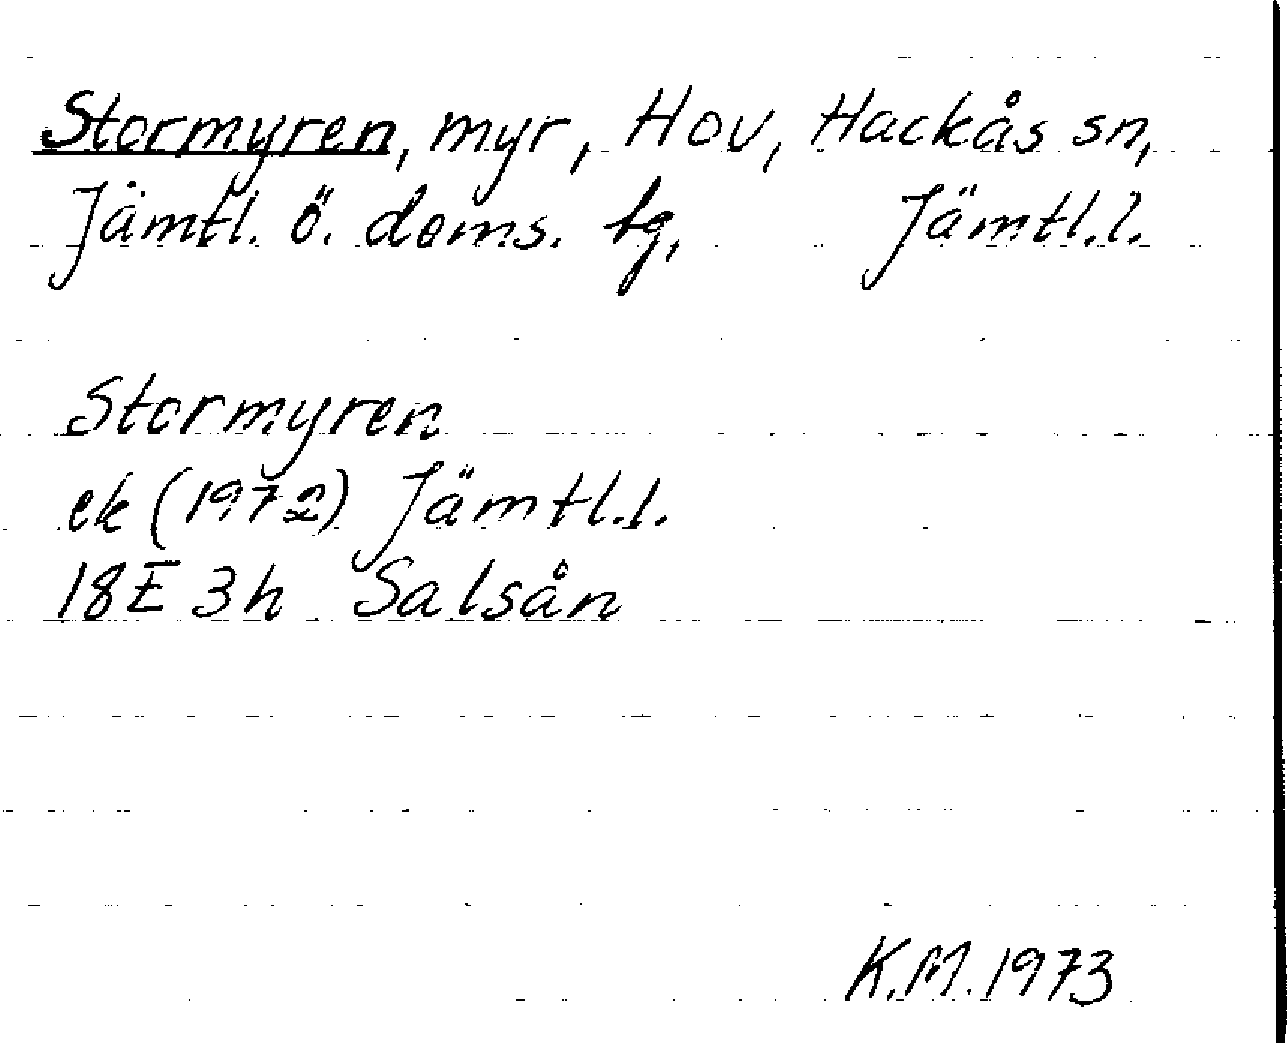 Stormyren, myr, Hov, Hackås sn,
Jämtl. ö. doms. tg, Jämtl.l.
Stormyren
ek (1972) Jämtl.l.
18E 3h Salsån
K.M. 1973